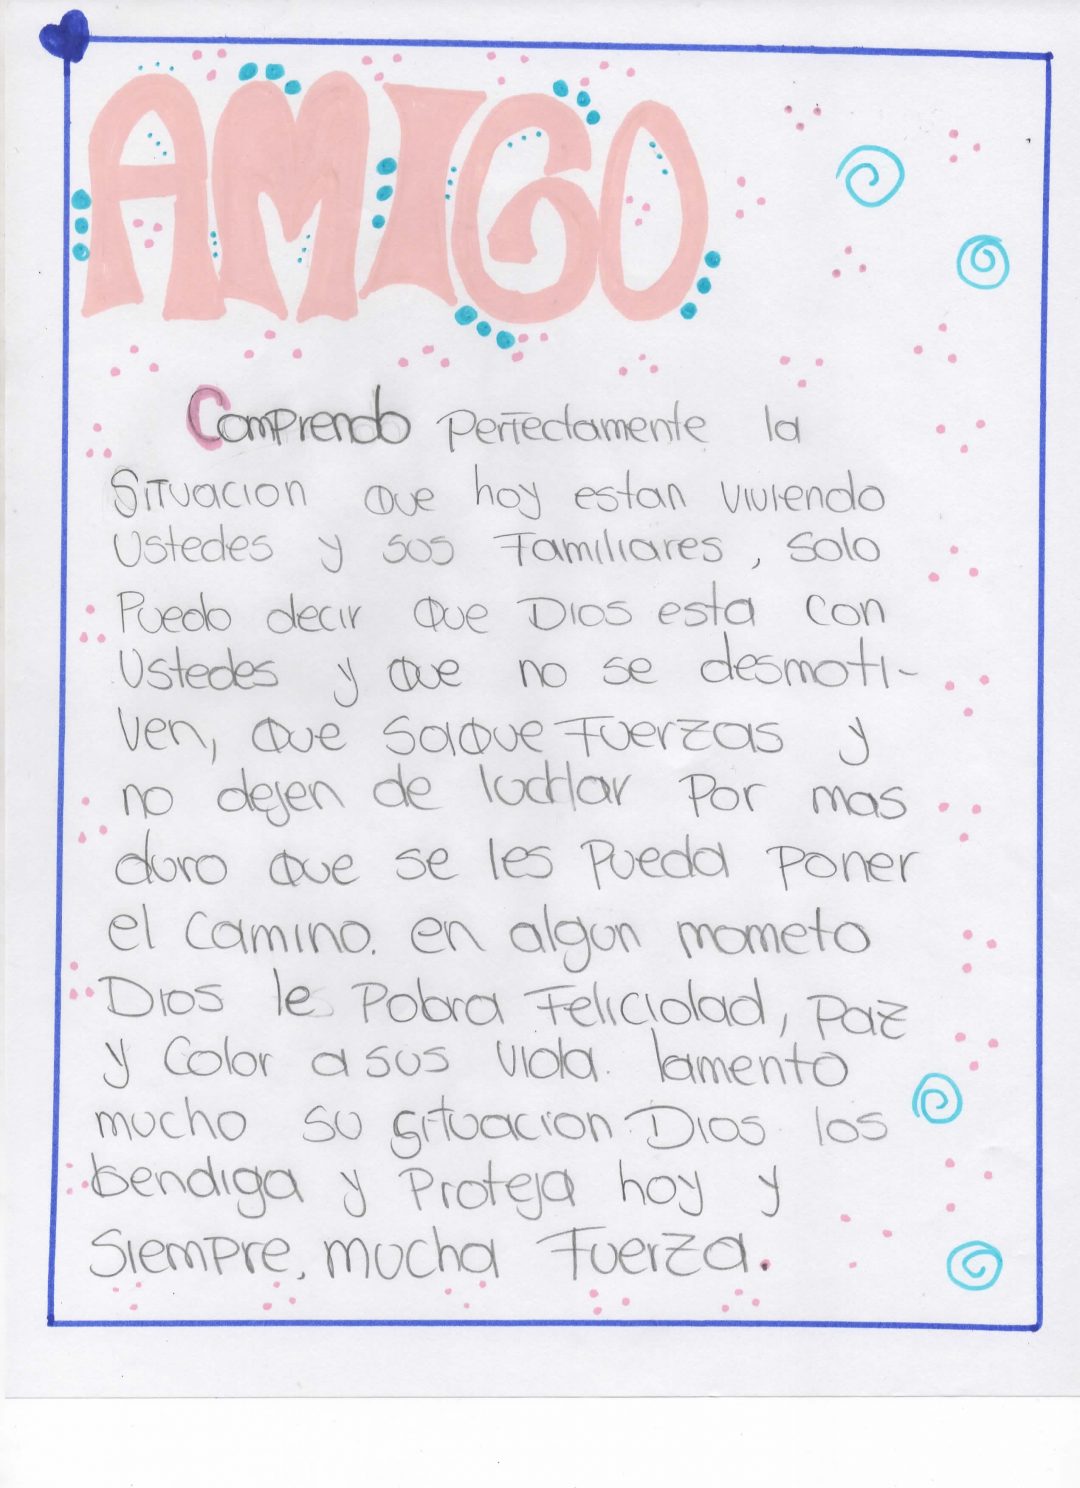 AMIGO
Comprendo perfectamente la
Situacion que hoy estan viviendo
Ustedes y sus Familiares, solo
Puedo decir que Dios esta con
Ustedes y que no se desmoti-
ven, que saque Fuerzas y
no dejen de luchar por mas
duro que se les pueda poner
el camino. en algun mometo
Dios le pobra Felicidad, paz
y color a sus vida. lamento
mucho su situacion. Dios los
bendiga y proteja hoy y
Siempre, mucha Fuerza.